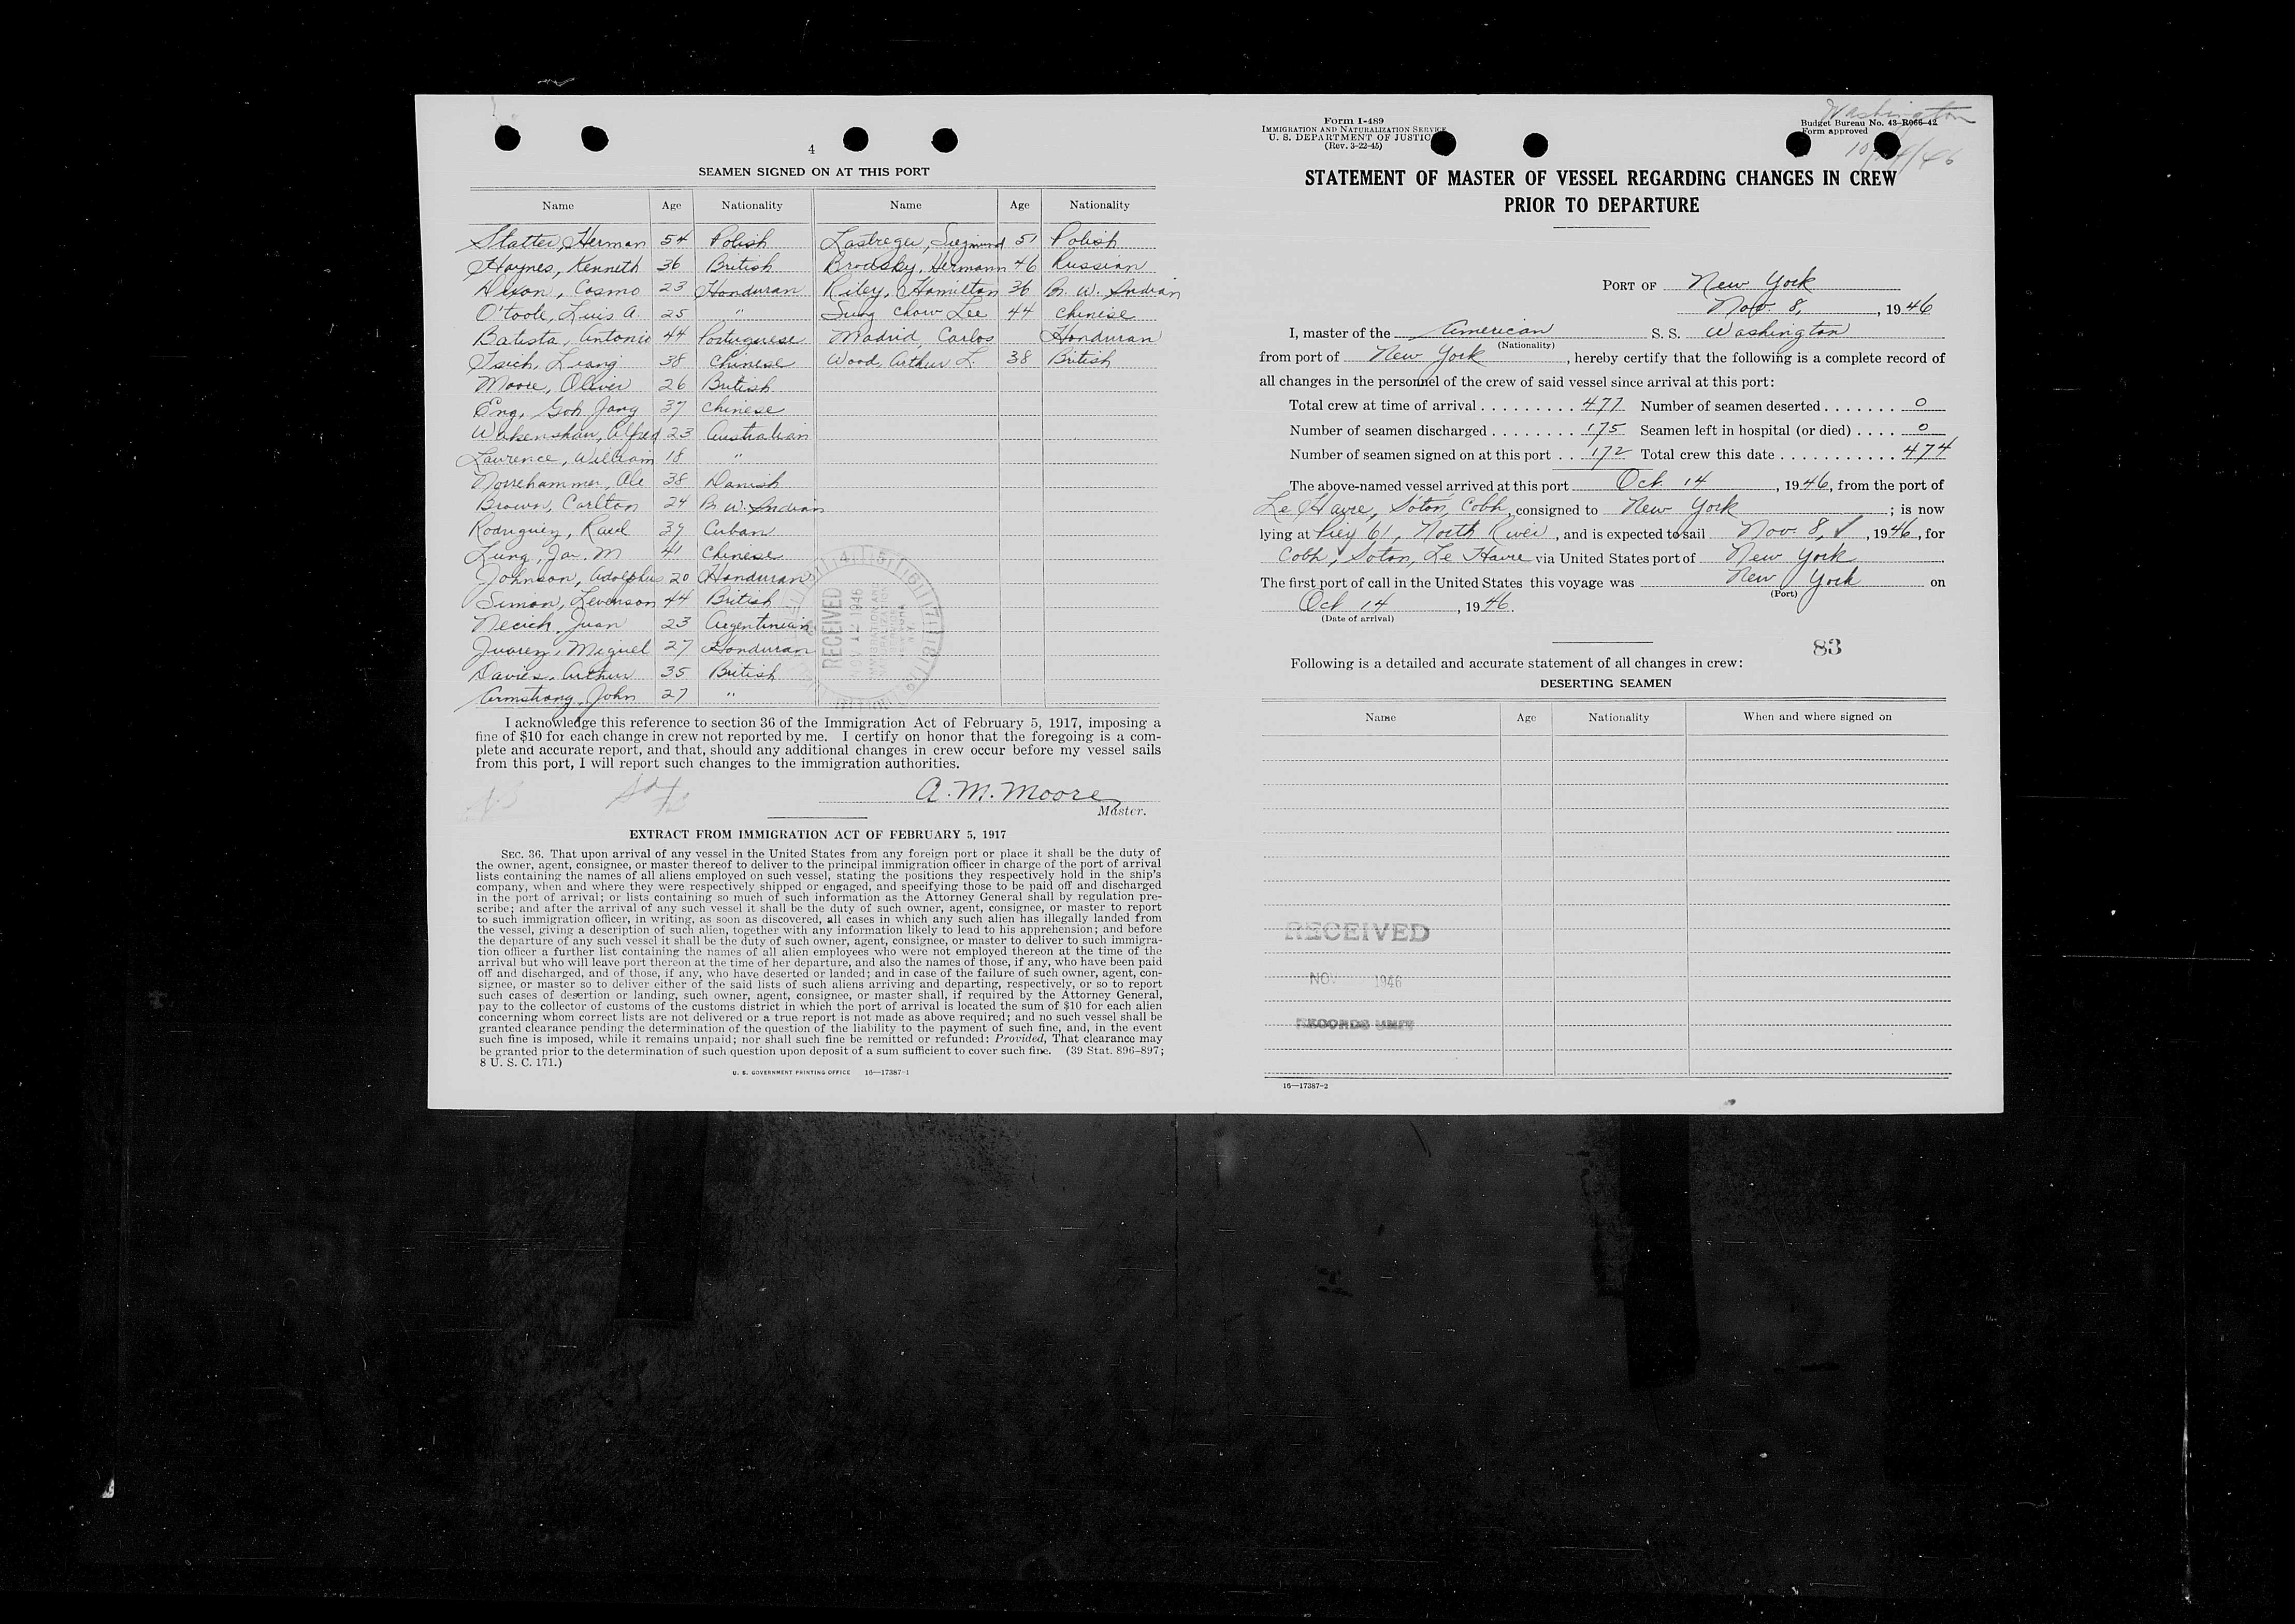 4
SEAMEN SIGNED ON AT THIS PORT
Name Age Nationality Name Age Nationality
Slatter, Herman 54 Polish Lastreger, Siegmund 51 Polish
Haynes, Kenneth 36 British Brodsky, Hermann 46 Russian
Dixon, Cosmo 23 Honduran Riley, Hamilton 36 Br. W. Indian
O'toole, Luis A 25 " Sung Chow Lee 44 Chinese
Batista, Antonio 44 Portuguese Madrid, Carlos Honduran
Tsich, Liang 38 Chinese Wood, Arthur L. 38 British
Moore, Oliver 26 British
Eng, Goh Jang 37 Chinese
Wakenshaw, Alfred 23 Australian
Laurence, William 18 "
Norrehammer, Ale 38 Danish
Brown, Carlton 24 Br. W. Indian
Rodriguez, Raul 39 Cuban
Lung, Jar. M 41 Chinese
Johnson, Adolphus 20 Honduran
Simon, Levenson 44 British
Necich, Juan 23 Argentinian
Juarez, Miguel 27 Honduran
Davies, Arthur 35 British
Armstrong, John 27 "
RECEIVED
NOV 12 1946
I acknowledge this reference to section 36 of the Immigration Act of February 5, 1917, imposing a
fine of $10 for each change in crew not reported by me. I certify on honor that the foregoing is a com-
plete and accurate report, and that, should any additional changes in crew occur before my vessel sails
from this port, I will report such changes to the immigration authorities.
A. M. Moore
Master.
EXTRACT FROM IMMIGRATION ACT OF FEBRUARY 5, 1917
SEC. 36. That upon arrival of any vessel in the United States from any foreign port or place it shall be the duty of
the owner, agent, consignee, or master thereof to deliver to the principal immigration officer in charge of the port of arrival
lists containing the names of all aliens employed on such vessel, stating the positions they respectively hold in the ship's
company, when and where they were respectively shipped or engaged, and specifying those to be paid off and discharged
in the port of arrival; or lists containing so much of such information as the Attorney General shall by regulation pre-
scribe; and after the arrival of any such vessel it shall be the duty of such owner, agent, consignee, or master to report
to such immigration officer, in writing, as soon as discovered, all cases in which any such alien has illegally landed from
the vessel, giving a description of such alien, together with any information likely to lead to his apprehension; and before
the departure of any such vessel it shall be the duty of such owner, agent, consignee, or master to deliver to such immigra-
tion officer a further list containing the names of all alien employees who were not employed thereon at the time of the
arrival but who will leave port thereon at the time of her departure, and also the names of those, if any, who have been paid
off and discharged, and of those, if any, who have deserted or landed; and in case of the failure of such owner, agent, con-
signee, or master so to deliver either of the said lists of such aliens arriving and departing, respectively, or so to report
such cases of desertion or landing, such owner, agent, consignee, or master shall, if required by the Attorney General,
pay to the collector of customs of the customs district in which the port of arrival is located the sum of $10 for each alien
concerning whom correct lists are not delivered or a true report is not made as above required; and no such vessel shall be
granted clearance pending the determination of the question of the liability to the payment of such fine, and, in the event
such fine is imposed, while it remains unpaid; nor shall such fine be remitted or refunded: Provided, That clearance may
be granted prior to the determination of such question upon deposit of a sum sufficient to cover such fine. (39 Stat. 896-897;
8 U. S. C. 171.)
U. S. GOVERNMENT PRINTING OFFICE 16—17387-1
Form I-489
IMMIGRATION AND NATURALIZATION SERVICE
U. S. DEPARTMENT OF JUSTICE
(Rev. 3-22-45)
Washington
Budget Bureau No. 43-R066-42
Form approved
STATEMENT OF MASTER OF VESSEL REGARDING CHANGES IN CREW
PRIOR TO DEPARTURE
PORT OF New York
Nov. 8, , 1946
I, master of the American S. S. Washington
(Nationality)
from port of New York , hereby certify that the following is a complete record of
all changes in the personnel of the crew of said vessel since arrival at this port:
Total crew at time of arrival . . . . . . . . . 477 Number of seamen deserted . . . . . . . 0
Number of seamen discharged . . . . . . . . 175 Seamen left in hospital (or died) . . . . 0
Number of seamen signed on at this port . . 172 Total crew this date . . . . . . . . . . . 474
The above-named vessel arrived at this port Oct 14 , 1946, from the port of
Le Havre, So'ton, Cobh, consigned to New York ; is now
lying at Pier 61, North River , and is expected to sail Nov. 8, , 1946, for
Cobh, Soton, Le Havre via United States port of New York .
The first port of call in the United States this voyage was New York on
(Port)
Oct 14 , 1946.
(Date of arrival)
83
Following is a detailed and accurate statement of all changes in crew:
DESERTING SEAMEN
Name Age Nationality When and where signed on
RECEIVED
NOV 1946
RECORDS UNIT
16—17387-2